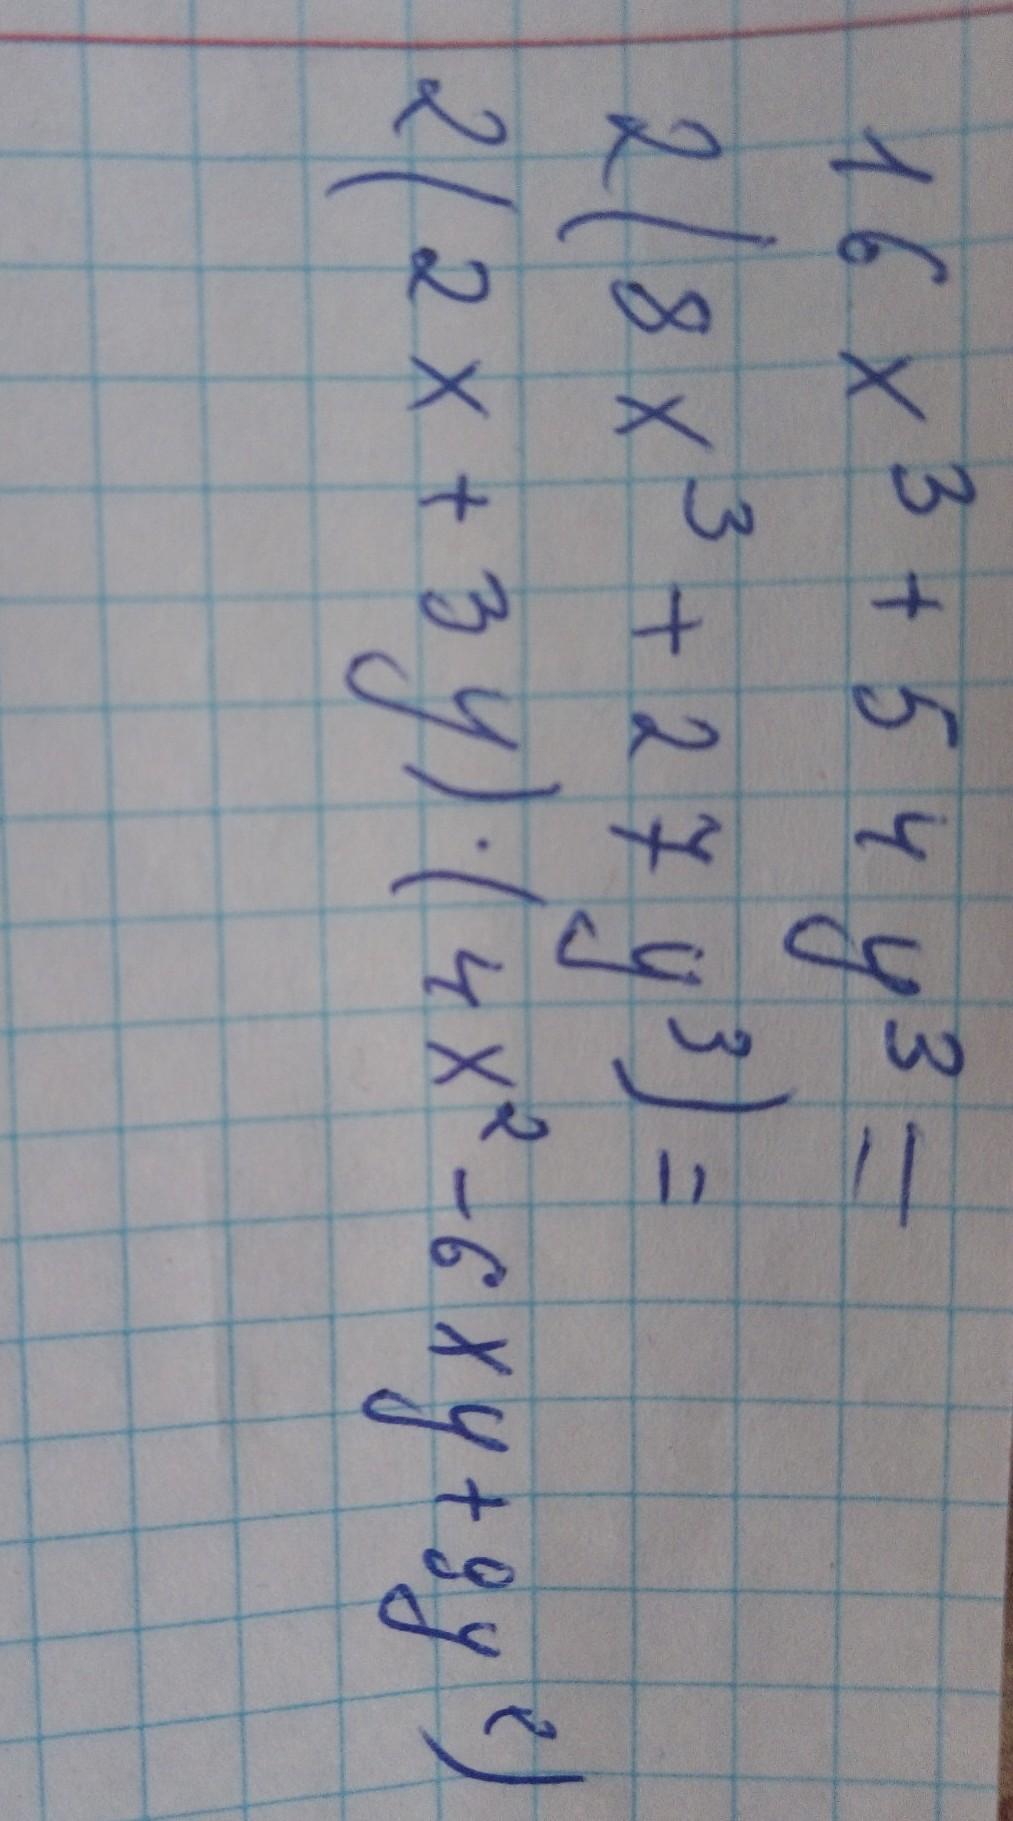 16x³+54y³=
2(8x³+27y³)=
2(2x+3y)·(4x²-6xy+9y²)